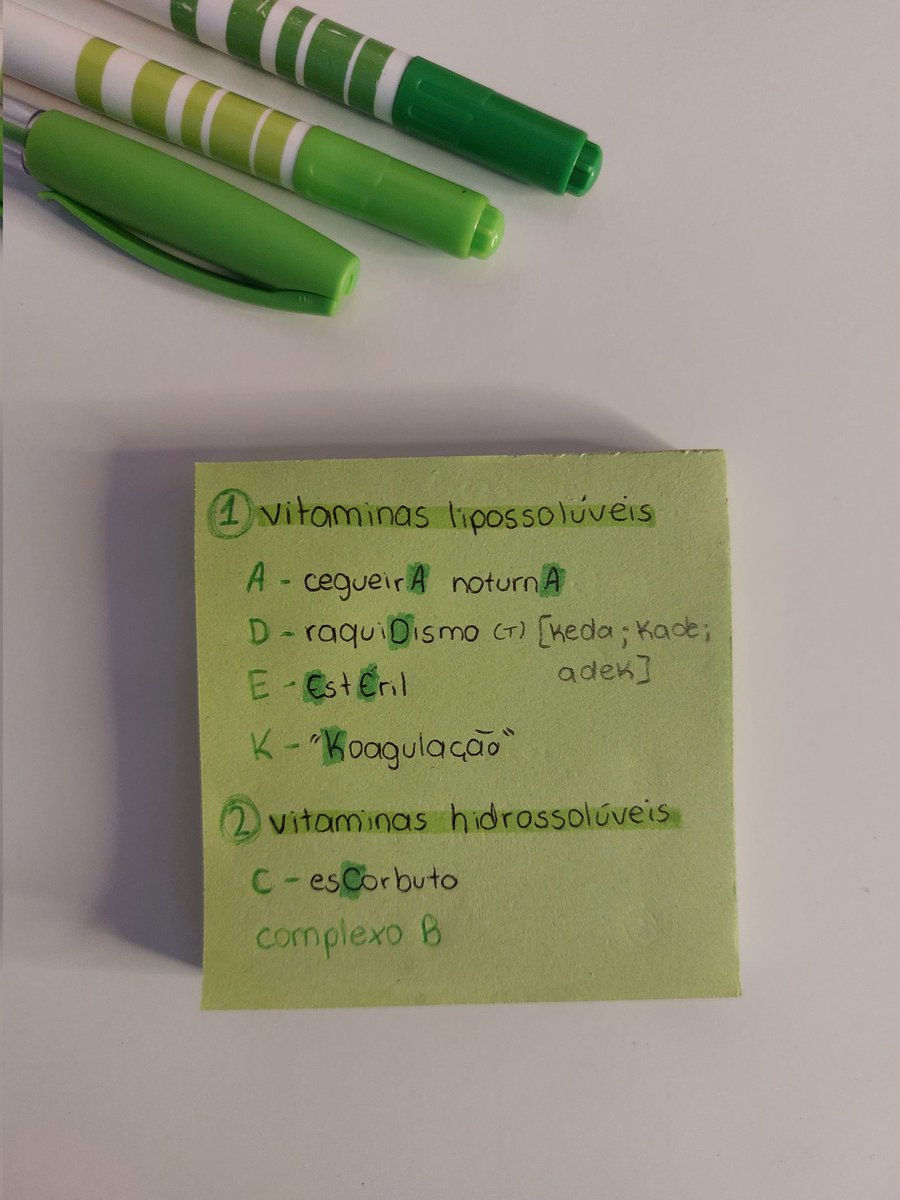 ① vitaminas lipossolúveis
A - cegueirA noturnA
D - raquiDismo (T) [keda; Kade;
adek]
E - EstEril
K - "Koagulação"
② vitaminas hidrossolúveis
C - esCorbuto
complexo B